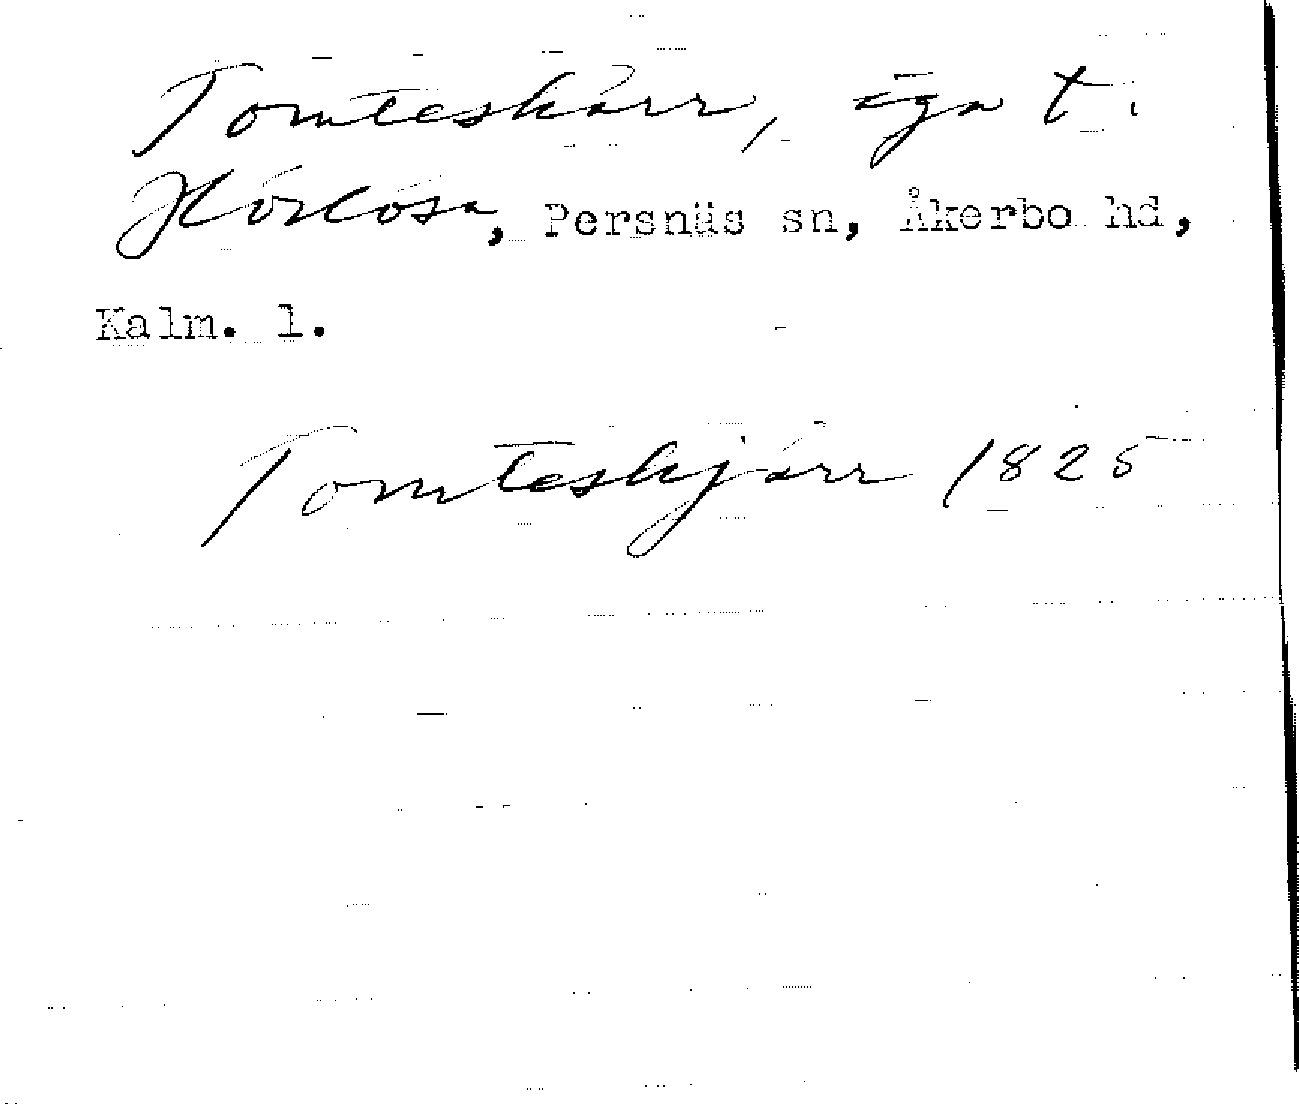 Tomteskärr, äga t.
Hörlösa, Persnäs sn, Åkerbo hd,
Kalm. l.
Tomteskjärr 1825